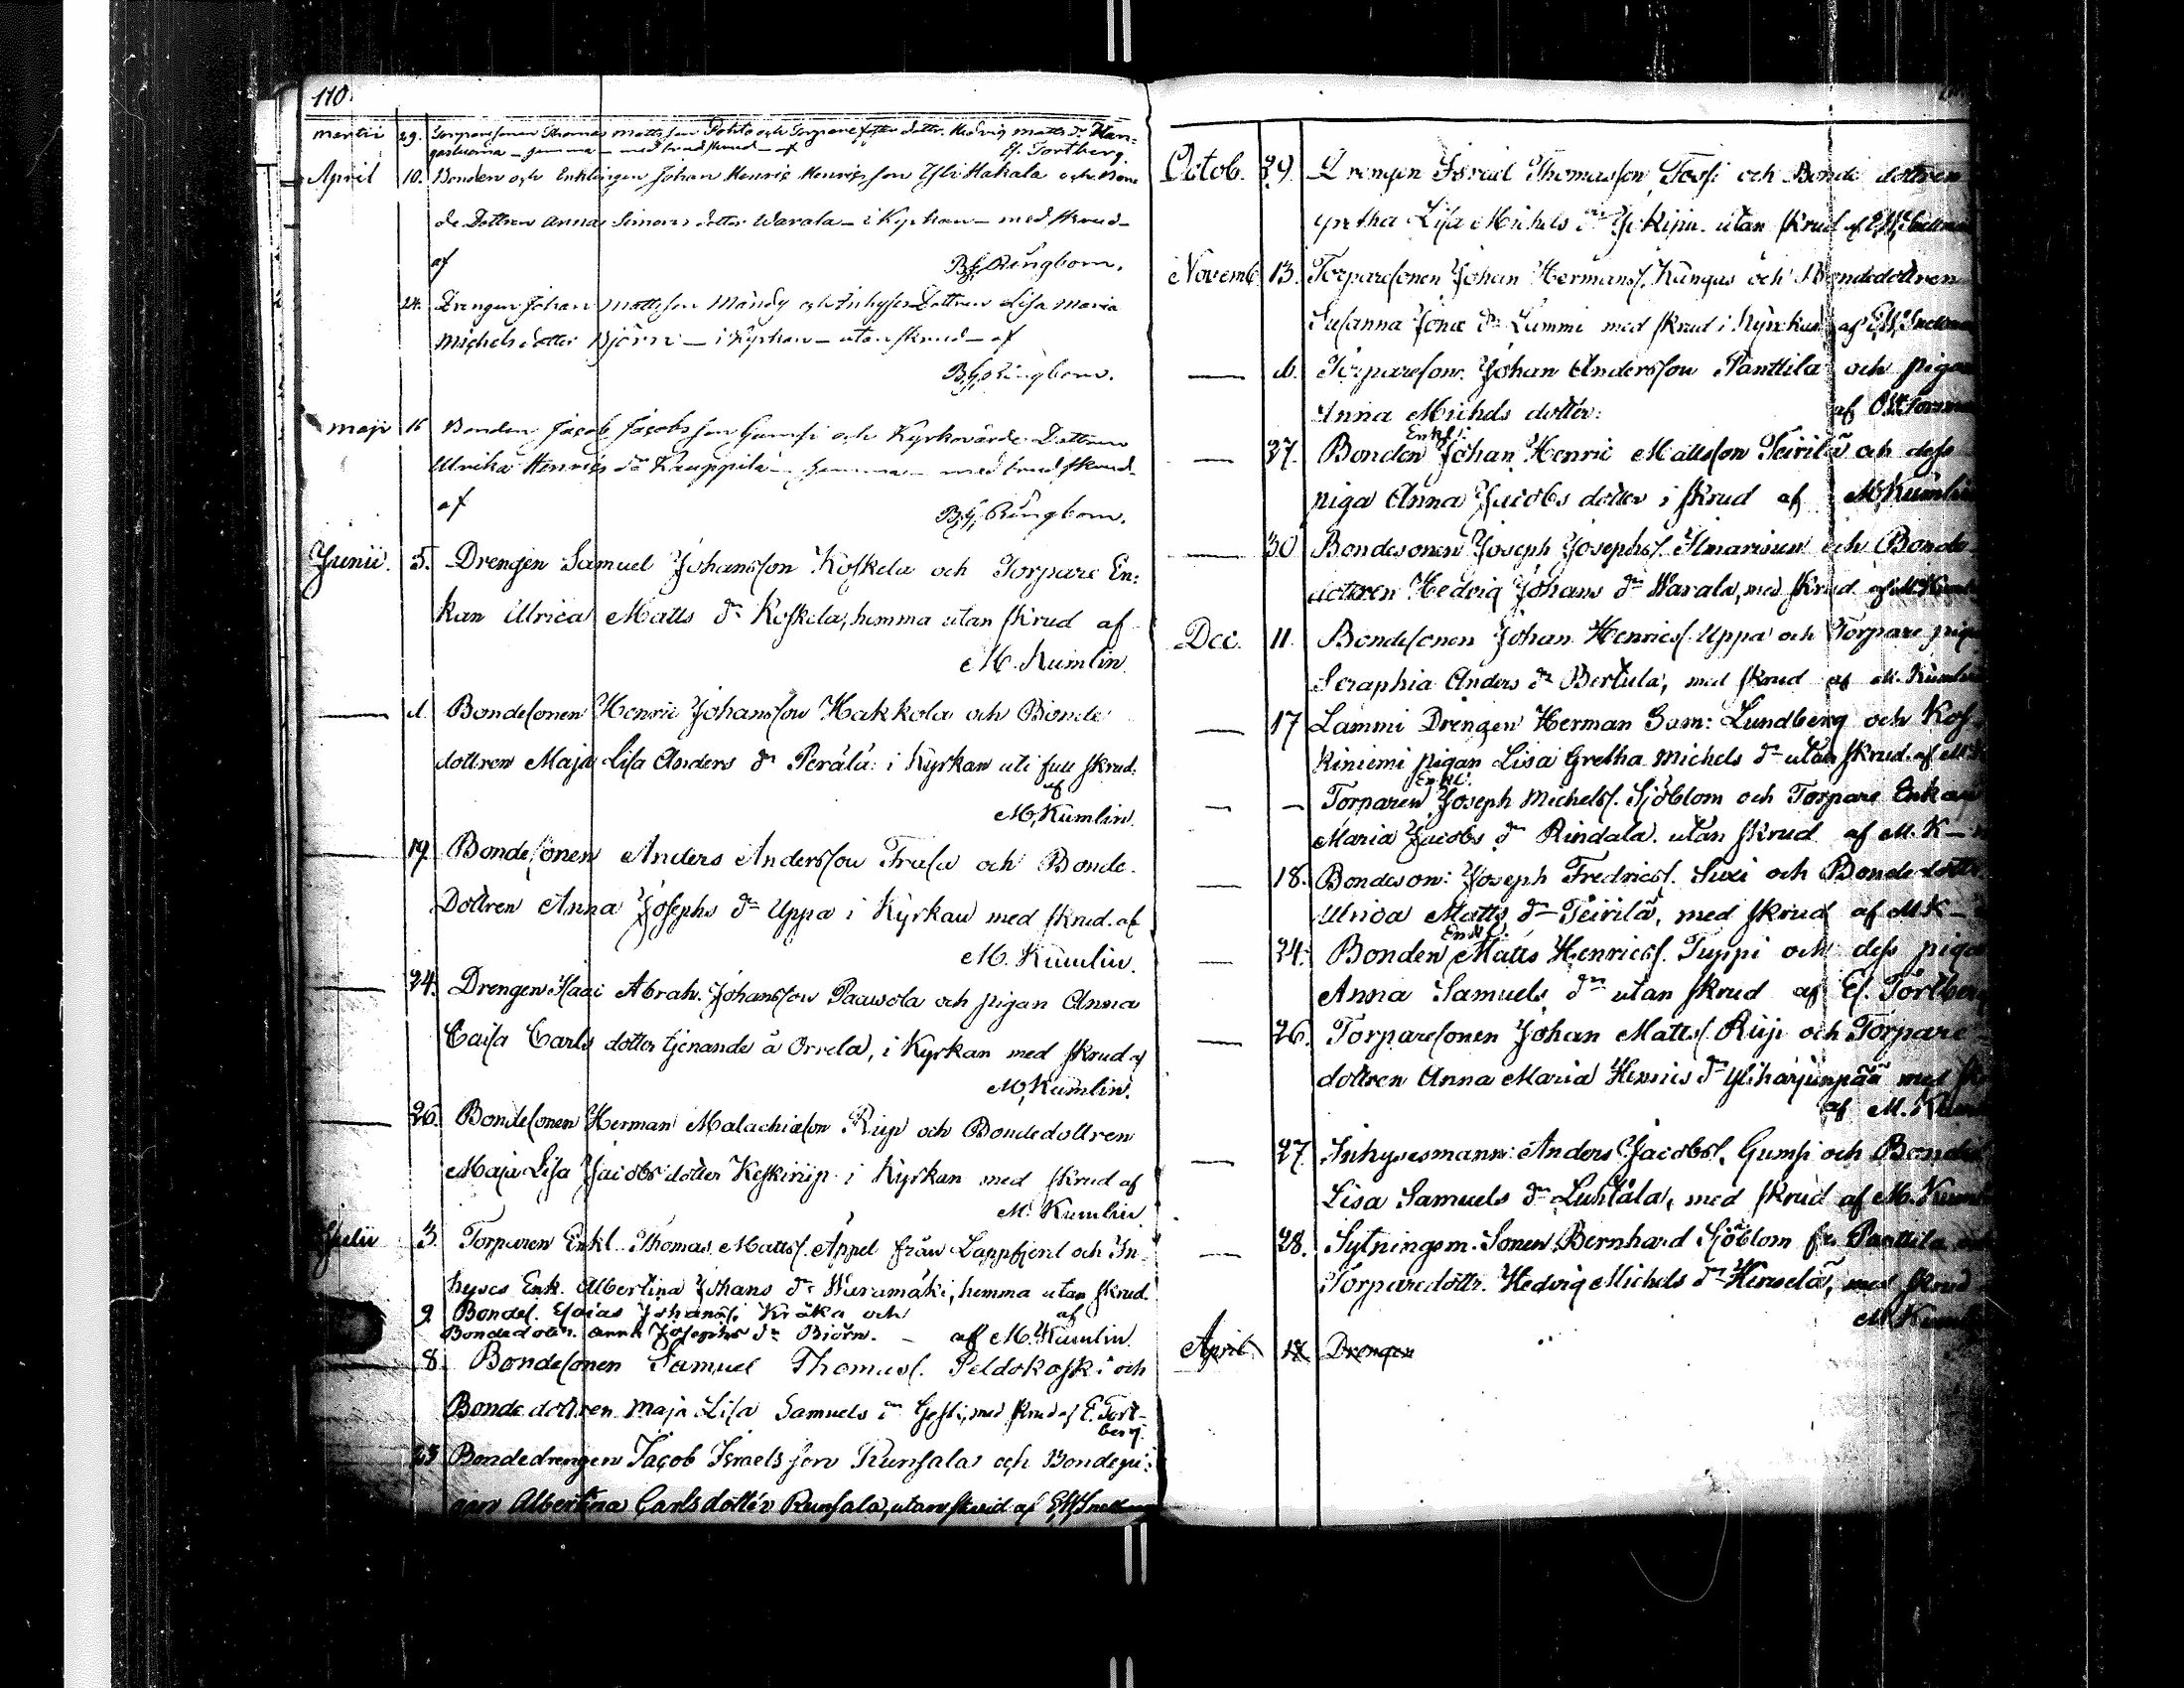 110.
Martii 29. Torparesonen Thomas Mattsson Pohto och Torparedotter Hedvig Matts dr Kan-
gasluoma – hemma – med brudskrud – af Ef. Tortberg.
April 10. Bonden och Enklingen Johan Henric Henricsson Yli Hakala och Bon-
de Dottren Anna Simons dotter Warala – i Kyrkan – med skrud –
af B.G. Ringbom.
24. Drengen Johan Mattsson Mändy och Inhyses Dottren Lisa Maria
Michels dotter Björn – i Kyrkan – utan skrud – af
B.G. Ringbom.
Maji 16 Bonden Jacob Jacobsson Gumsi och Kyrkovärde Dottren
Ulrika Henrics dr Kauppila – hemma – med brudskrud –
af B.G. Ringbom.
Junii. 5. Drengen Samuel Johansson Koskela och Torpare En:
kan Ulrica Matts dr Koskela, hemma utan skrud af
M. Kumlin.
— d. Bondesonen Henric Johansson Hakkola och Bonde
dottren Maja Lisa Anders dr Perälä: i Kyrkan uti full skrud.
af
M. Kumlin.
— 19. Bondesonen Anders Andersson Frusa och Bonde-
Dottren Anna Josephs dr Uppa i Kyrkan med skrud. af
M. Kumlin.
— 24. Drengen Abrah. Johansson Paavola och pigan Anna
Caisa Carls dotter tjenande å Orrela, i Kyrkan med skrud af
M. Kumlin.
— 26. Bondesonen Herman Malachiæson Riip och Bondedottren
Maja Lisa Jacobs dotter Keskiriip i Kyrkan med skrud af
M. Kumlin
Julii 3. Torparen Enkl. Thomas Matts. Äppel från Lappfjerd och In-
hyses Enk. Albertina Johans dr Wuramäki, hemma utan skrud.
af
9. Bondes. Esaias Johans. Kråka och
Bondedottr. Anna Josephs dr Björn. – af M. Kumlin.
— 8. Bondesonen Samuel Thomas. Peldokoski och
Bondedottren Maja Lisa Samuels dr med skrud af E. Tort-
berg.
23 Bondedrengen Jacob Israelsson Runsala och Bondepi:
gan Albertina Carlsdotter Runsala, utan skrud af
Octob. 29. Drengen Israel Thomasson Tassi och Bonde dottren
Gretha Lisa Michels dr utan skrud af
Novemb. 13. Torparesonen Johan Hermans. Kangas och Bondedottren
Susanna Jonæ dr Lammi med skrud i Kyrkan af
— d. Torpareson. Johan Andersson Panttila och pigan
Anna Michels dotter: af
Enkl:
— 27. Bonden Johan Henric Mattsson Teirilä och dess
piga Anna Jacobs dotter i skrud af M. Kumlin
— 30 Bondesonen Joseph Josephs. Ilmarinen och Bonde-
dottren Hedvig Johans dr Warala, med skrud af M. Kumlin
Dec. 11. Bondesonen Johan Henrics. Uppa och Torpare pigan
Seraphia Anders dr Bertula, med skrud af M. Kumlin
— 17 Lammi Drengen Herman Sam: Lundberg och Kos-
kiniemi pigan Lisa Gretha Michels dr utan skrud. af M.K
Enkl:
— — Torparen Joseph Michels. Sjöblom och Torpare Enkan
Maria Jacobs dr Rindala. utan skrud af M. K—n
— 18. Bondeson: Joseph Fredrics. Suxi och Bondedottr.
Ulrica Matts dr Teirilä, med skrud af M K—
Enkl.
— 24. Bonden Matts Henrics. Tuppi och dess piga
Anna Samuels dr utan skrud af Ef. Tortberg
— 26. Torparesonen Johan Matts. Riip och Torpare
dottren Anna Maria Henrics dr Yliharjunpää med sk
af M. Kumlin
— 27. Inhysesmann: Anders Jacobs. Gumsi och Bonde
Lisa Samuels dr Luhtala, med skrud af M. Kuml
— 28. Sytningsm. Sonen Bernhard Sjöblom fr. Panttila och
Torparedottr. Hedvig Michels dr med skrud
M Kuml
April. 17. Drengen